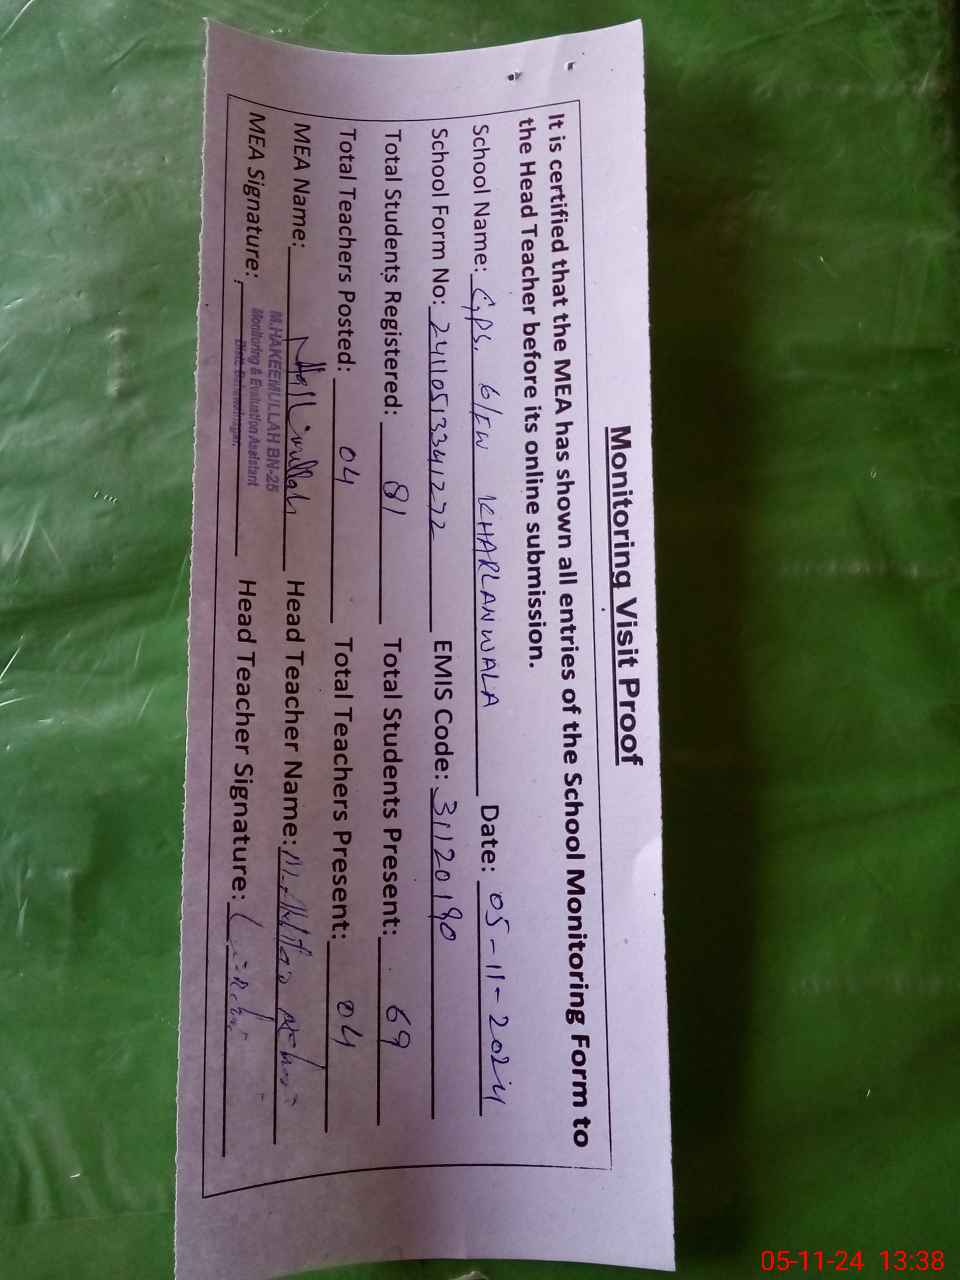 Monitoring Visit Proof
It is certified that the MEA has shown all entries of the School Monitoring Form to
the Head Teacher before its online submission.
School Name: GPS. 6/FW KHARLANWALA Date: 05-11-2024
School Form No: 24110513341272 EMIS Code: 31120190
Total Students Registered: 81 Total Students Present: 69
Total Teachers Posted: 04 Total Teachers Present: 04
MEA Name: Head Teacher Name:
M.HAKEEMULLAH BN-25
Monitoring & Evaluation Assistant
Distt. Bahawalnagar.
MEA Signature: Head Teacher Signature:
05-11-24 13:38